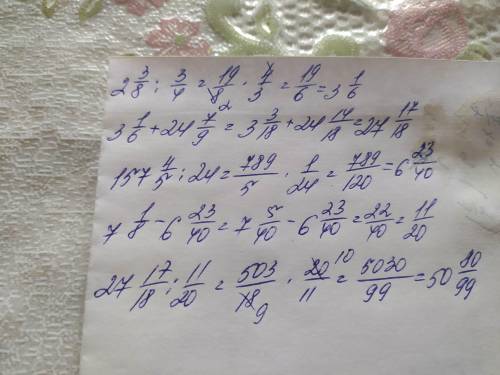 2 3/8 : 3/4 = 19/8 2 · 4/3 = 19/6 = 3 1/6
3 1/6 + 24 7/9 = 3 3/18 + 24 14/18 = 27 17/18
157 4/5 : 24 = 789/5 · 1/24 = 789/120 = 6 23/40
7 1/8 - 6 23/40 = 7 5/40 - 6 23/40 = 22/40 = 11/20
27 17/18 : 11/20 = 503/18 9 · 20 10/11 = 5030/99 = 50 80/99